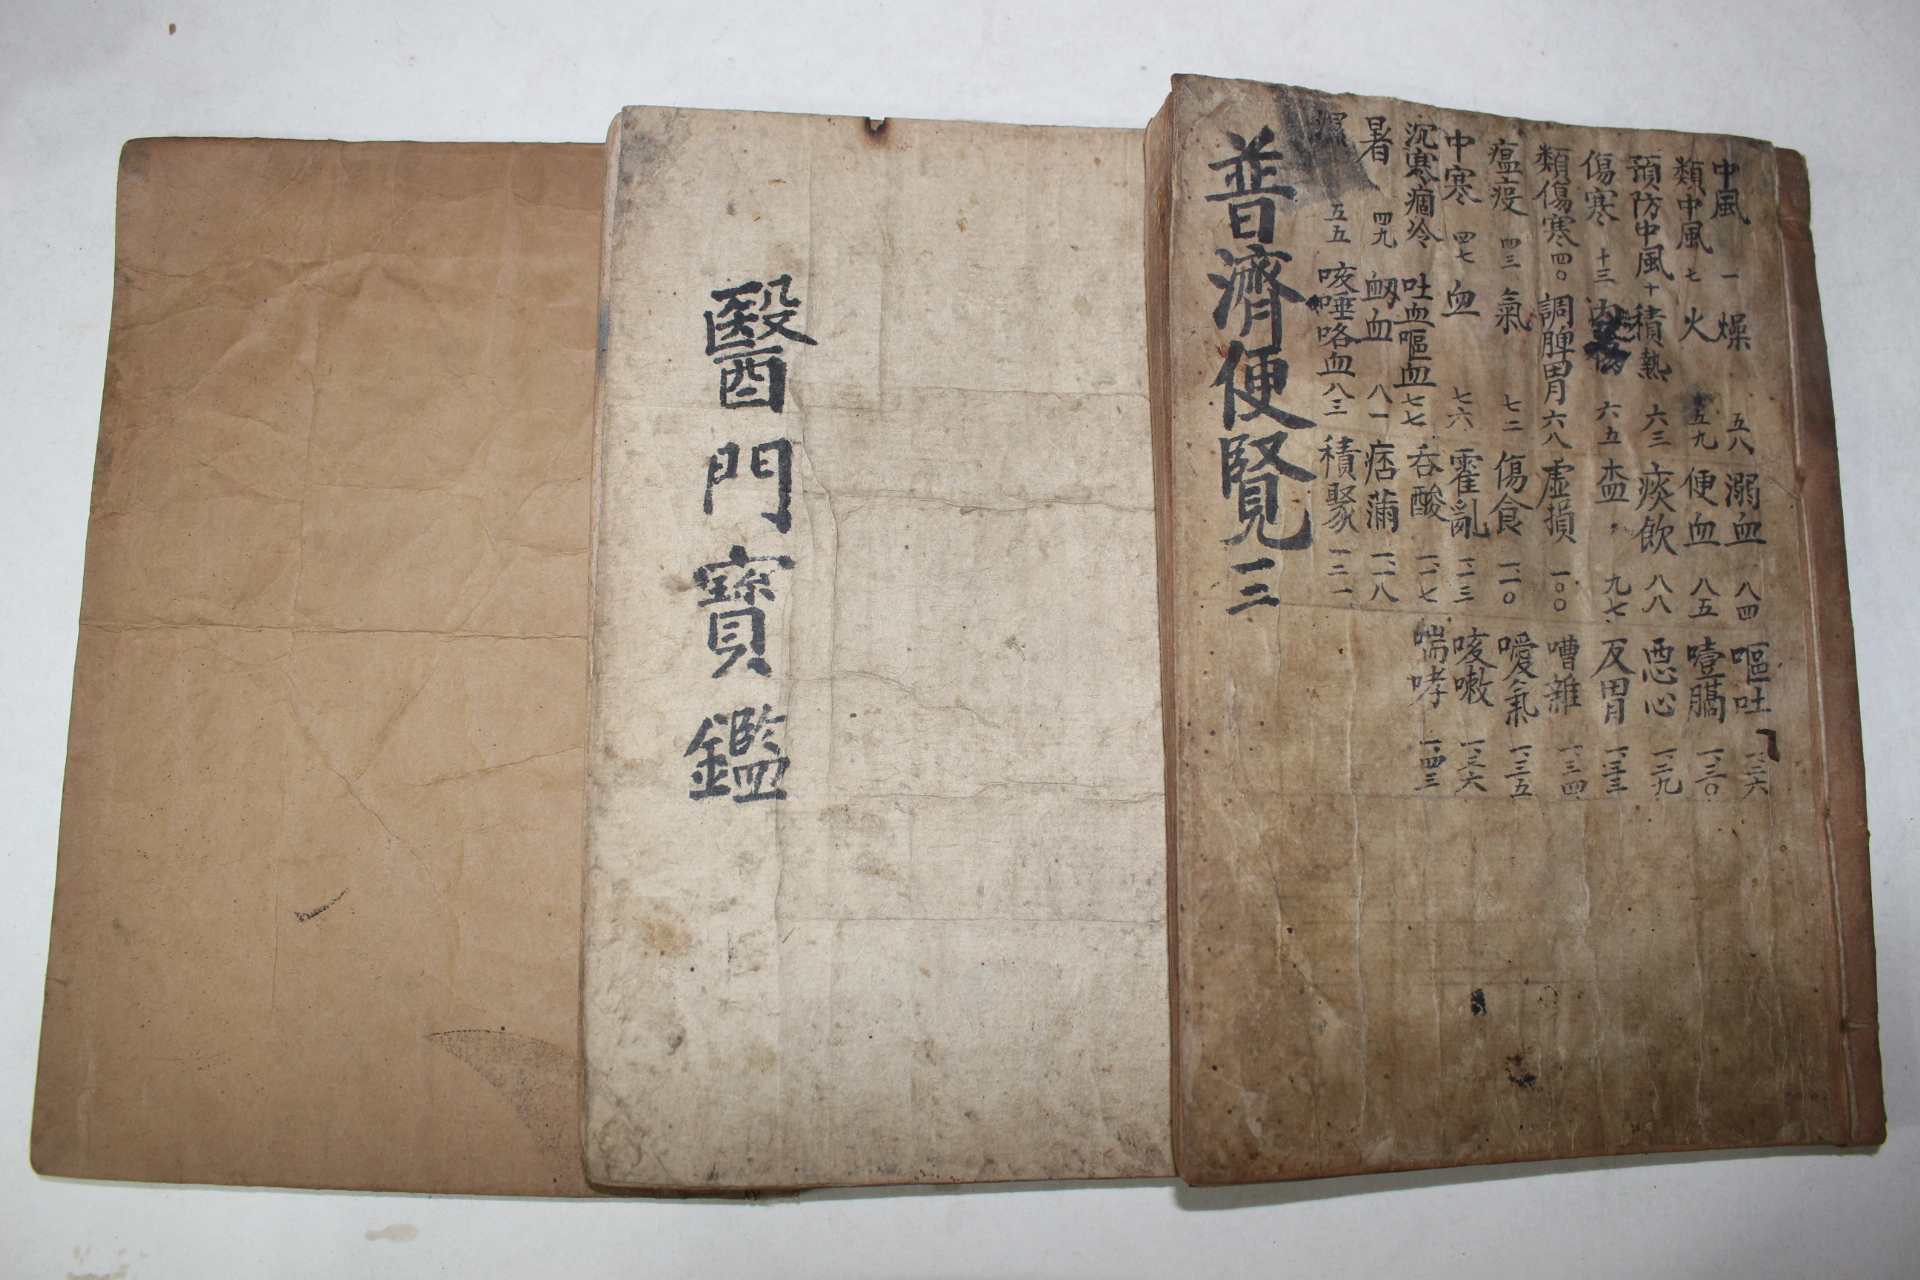 中風 一 燥 五八 溺血 八四 嘔吐 一二六
類中風 七 火 五九 便血 八五 噎膈 一三〇
預防中風 十 積熱 六三 痰飮 八八 惡心 一二九
傷寒 十三 六五 九七 反胃 一三三
類傷寒 四〇 調脾胃 六八 虛損 一〇〇 嘈雜 一三四
瘟疫 四三 氣 七二 傷食 一一〇 噯氣 一三五
中寒 四七 血 七六 霍亂 一一三 咳嗽 一三六
沉寒痼冷 吐血嘔血 七七 吞酸 一一七 喘哮 一四三
暑 四九 衂血 八一 痞滿 一一八
濕 五五 咳唾咯血 八三 積聚 一二一
普濟便覽 三
醫門寶鑑